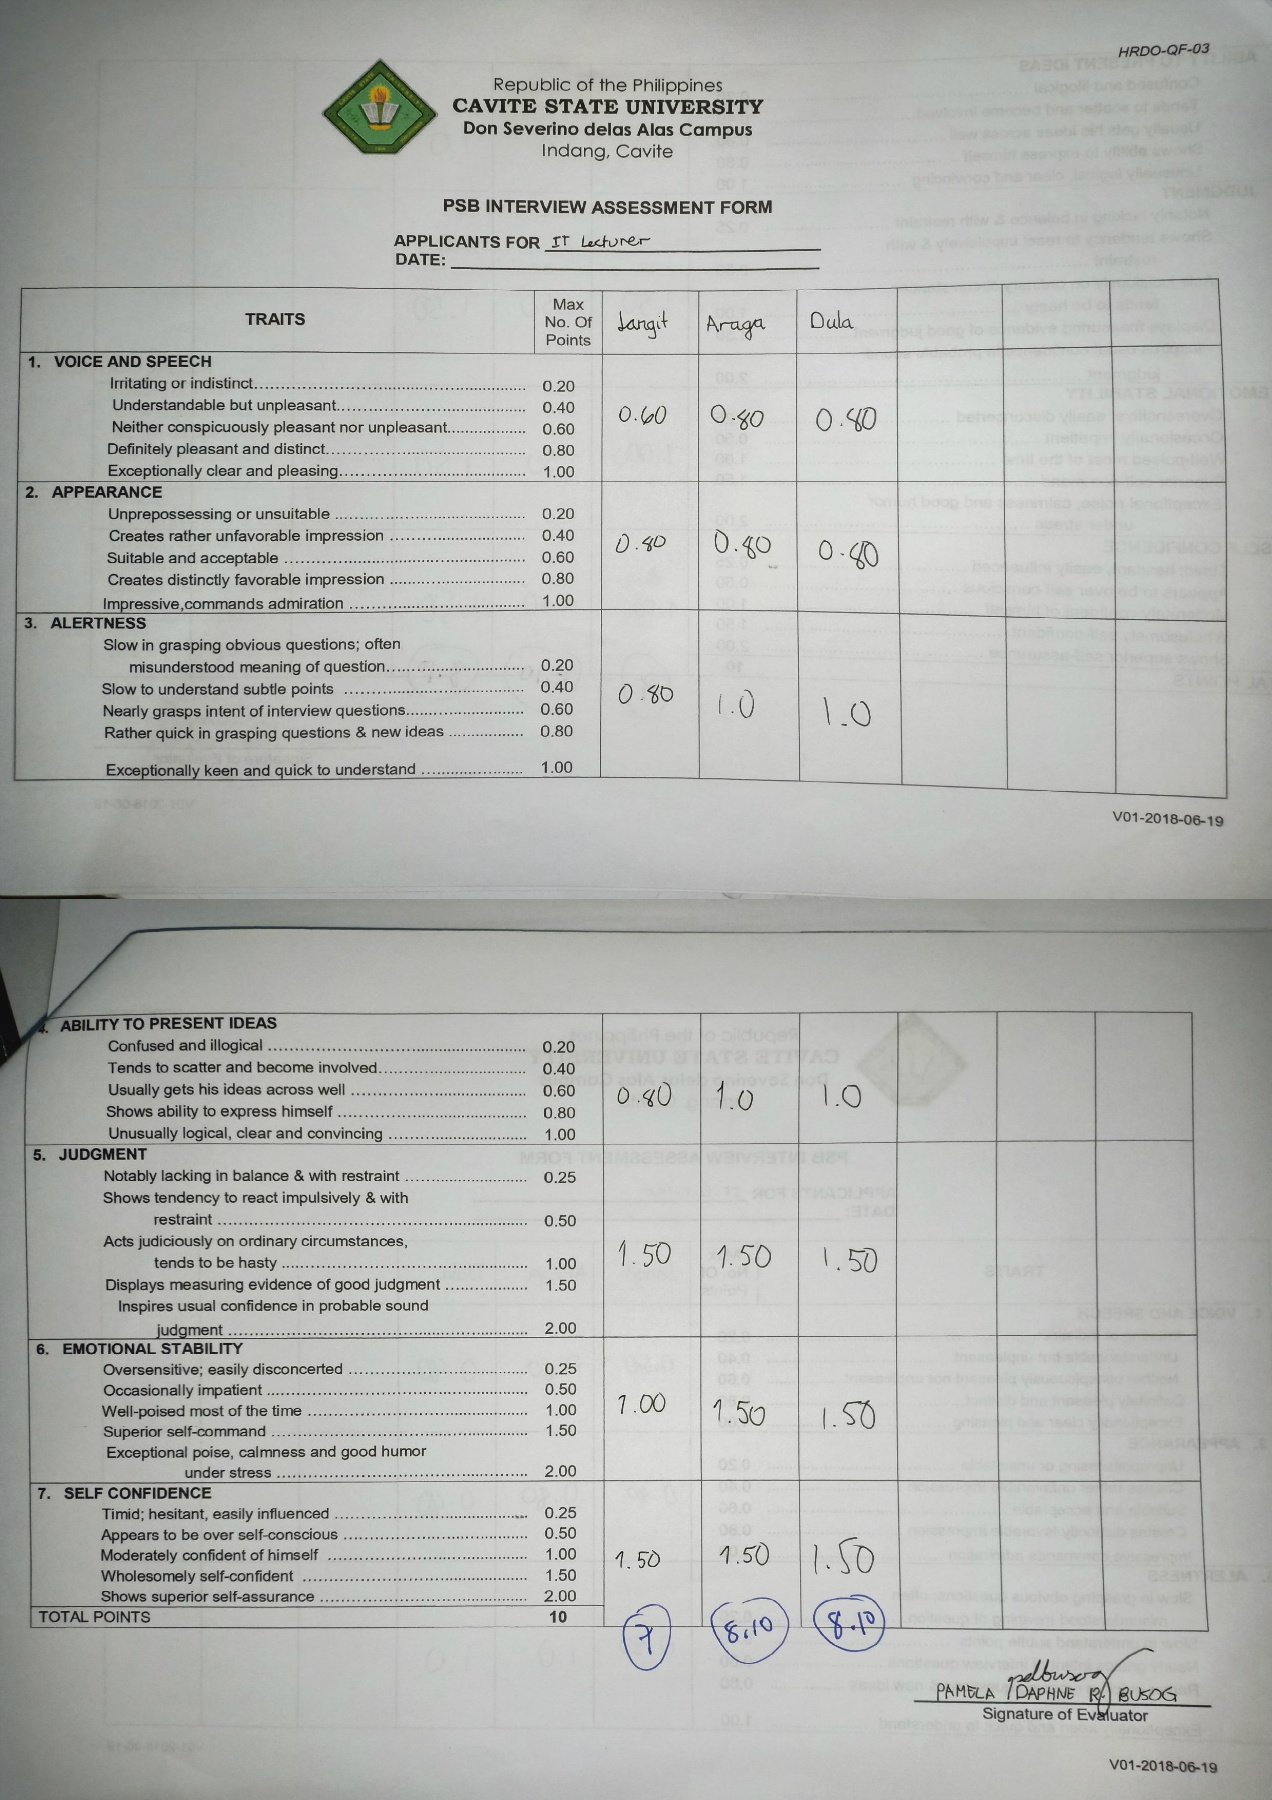 HRDO-QF-03
Republic of the Philippines
CAVITE STATE UNIVERSITY
Don Severino delas Alas Campus
Indang, Cavite
PSB INTERVIEW ASSESSMENT FORM
APPLICANTS FOR IT Lecturer
DATE:
TRAITS Max No. Of Points Langit Araga Dula
1. VOICE AND SPEECH
Irritating or indistinct 0.20
Understandable but unpleasant 0.40
Neither conspicuously pleasant nor unpleasant 0.60
Definitely pleasant and distinct 0.80
Exceptionally clear and pleasing 1.00
0.60 0.80 0.80
2. APPEARANCE
Unprepossessing or unsuitable 0.20
Creates rather unfavorable impression 0.40
Suitable and acceptable 0.60
Creates distinctly favorable impression 0.80
Impressive,commands admiration 1.00
0.80 0.80 0.80
3. ALERTNESS
Slow in grasping obvious questions; often
misunderstood meaning of question 0.20
Slow to understand subtle points 0.40
Nearly grasps intent of interview questions 0.60
Rather quick in grasping questions & new ideas 0.80
Exceptionally keen and quick to understand 1.00
0.80 1.0 1.0
V01-2018-06-19
4. ABILITY TO PRESENT IDEAS
Confused and illogical 0.20
Tends to scatter and become involved 0.40
Usually gets his ideas across well 0.60
Shows ability to express himself 0.80
Unusually logical, clear and convincing 1.00
0.80 1.0 1.0
5. JUDGMENT
Notably lacking in balance & with restraint 0.25
Shows tendency to react impulsively & with
restraint 0.50
Acts judiciously on ordinary circumstances,
tends to be hasty 1.00
Displays measuring evidence of good judgment 1.50
Inspires usual confidence in probable sound
judgment 2.00
1.50 1.50 1.50
6. EMOTIONAL STABILITY
Oversensitive; easily disconcerted 0.25
Occasionally impatient 0.50
Well-poised most of the time 1.00
Superior self-command 1.50
Exceptional poise, calmness and good humor
under stress 2.00
1.00 1.50 1.50
7. SELF CONFIDENCE
Timid; hesitant, easily influenced 0.25
Appears to be over self-conscious 0.50
Moderately confident of himself 1.00
Wholesomely self-confident 1.50
Shows superior self-assurance 2.00
1.50 1.50 1.50
TOTAL POINTS 10 7 8.10 8.10
pdbusog
PAMELA DAPHNE R. BUSOG
Signature of Evaluator
V01-2018-06-19